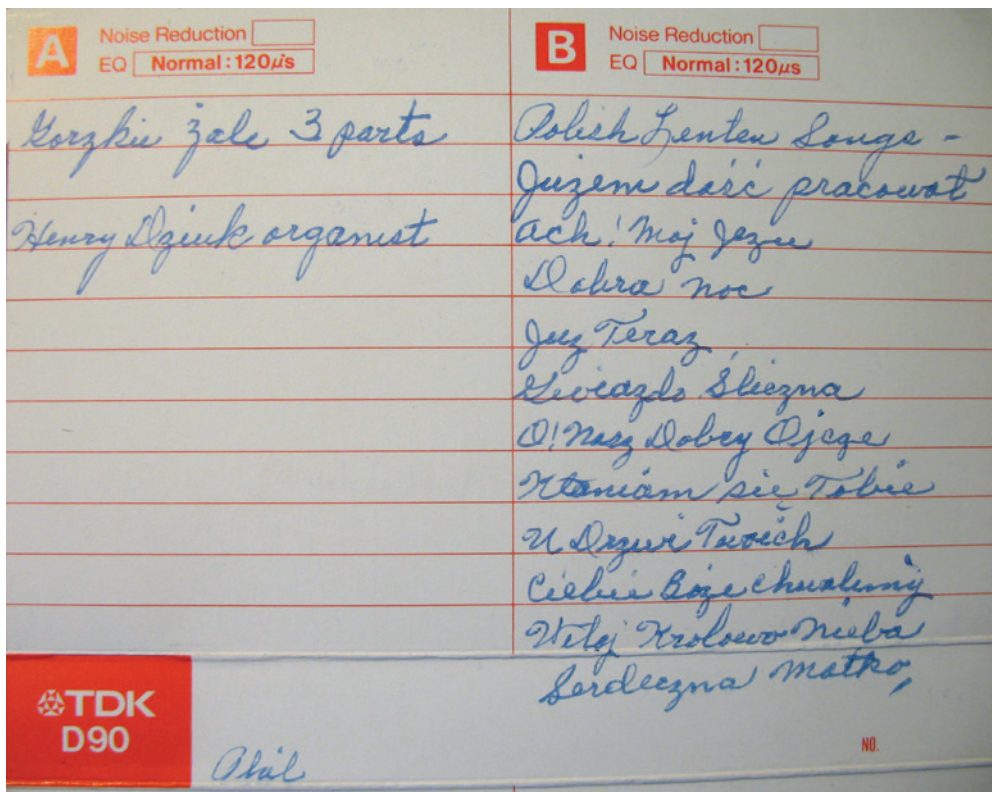 A Noise Reduction
EQ Normal:120μs
Gorzkie Żale 3 parts
Henry Dziuk organist
B Noise Reduction
EQ Normal:120μs
Polish Lenten Songs -
Juzem dość pracował
Ach! Moj Jezu
Dobra noc
Juz Teraz
Gwiazdo Śliczna
O! Nasz Dobry Ojcze
Kłaniam sie Tobie
U Drzwi Twoich
Ciebie Boże chwalimy
Witaj Krolowo Nieba
Serdeczna Matko,
TDK
D90
Phil
NO.